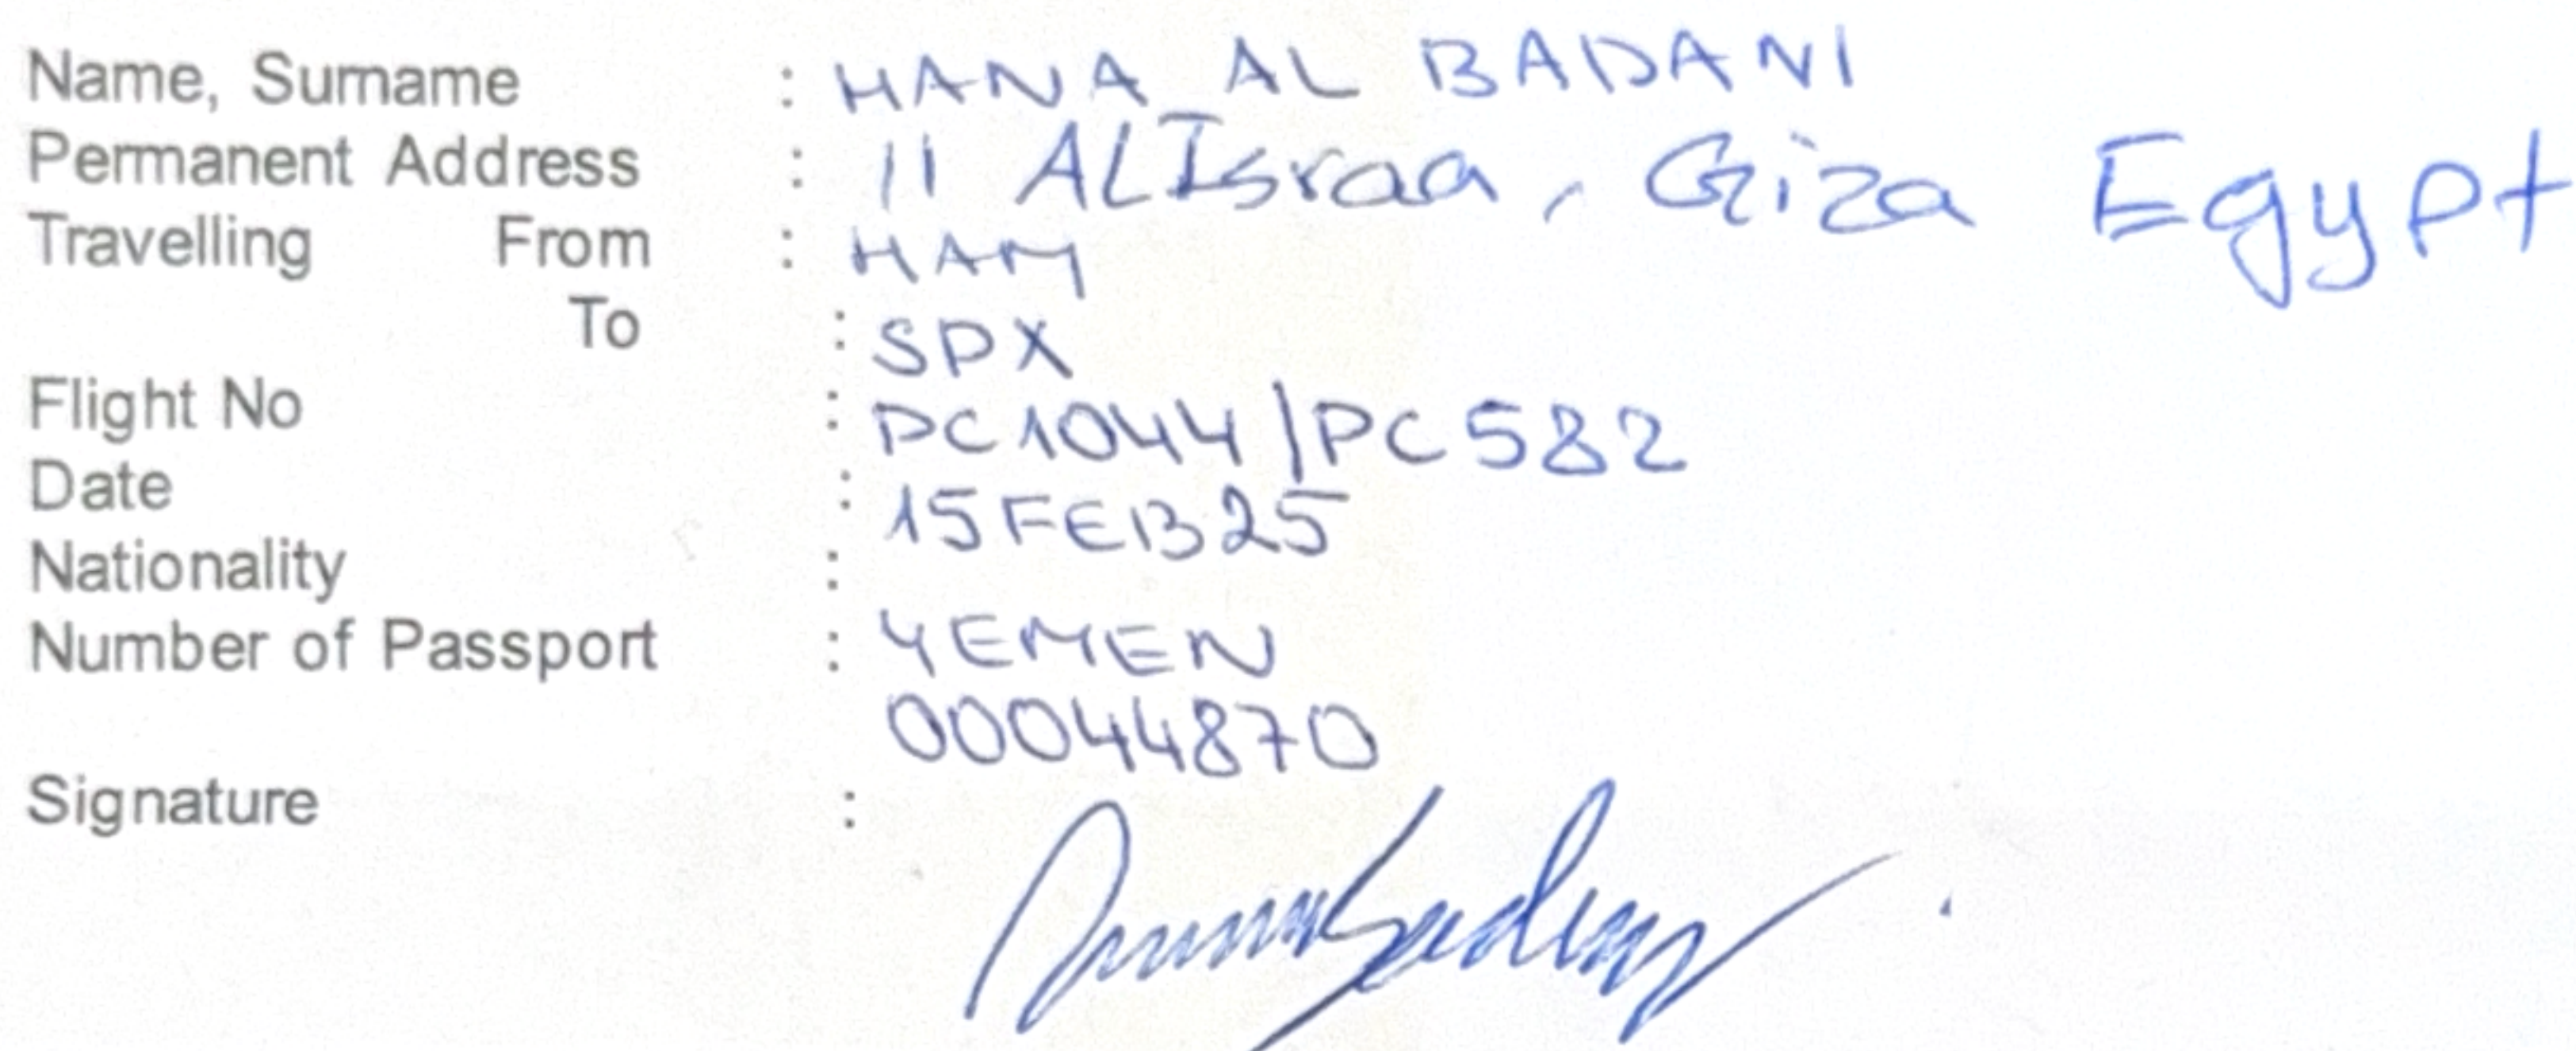 Name, Surname : HANA AL BADANI
Permanent Address : 11 ALIsraa, Giza Egypt
Travelling From : HAM
To : SPX
Flight No : PC1044/PC582
Date : 15FEB25
Nationality :
Number of Passport : YEMEN
00044870
Signature :